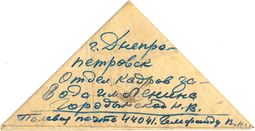 г. Днепро-
петровск
Отдел кадров за-
вода им. Ленина
Городынской Н.В.
Полевая почта 44041.